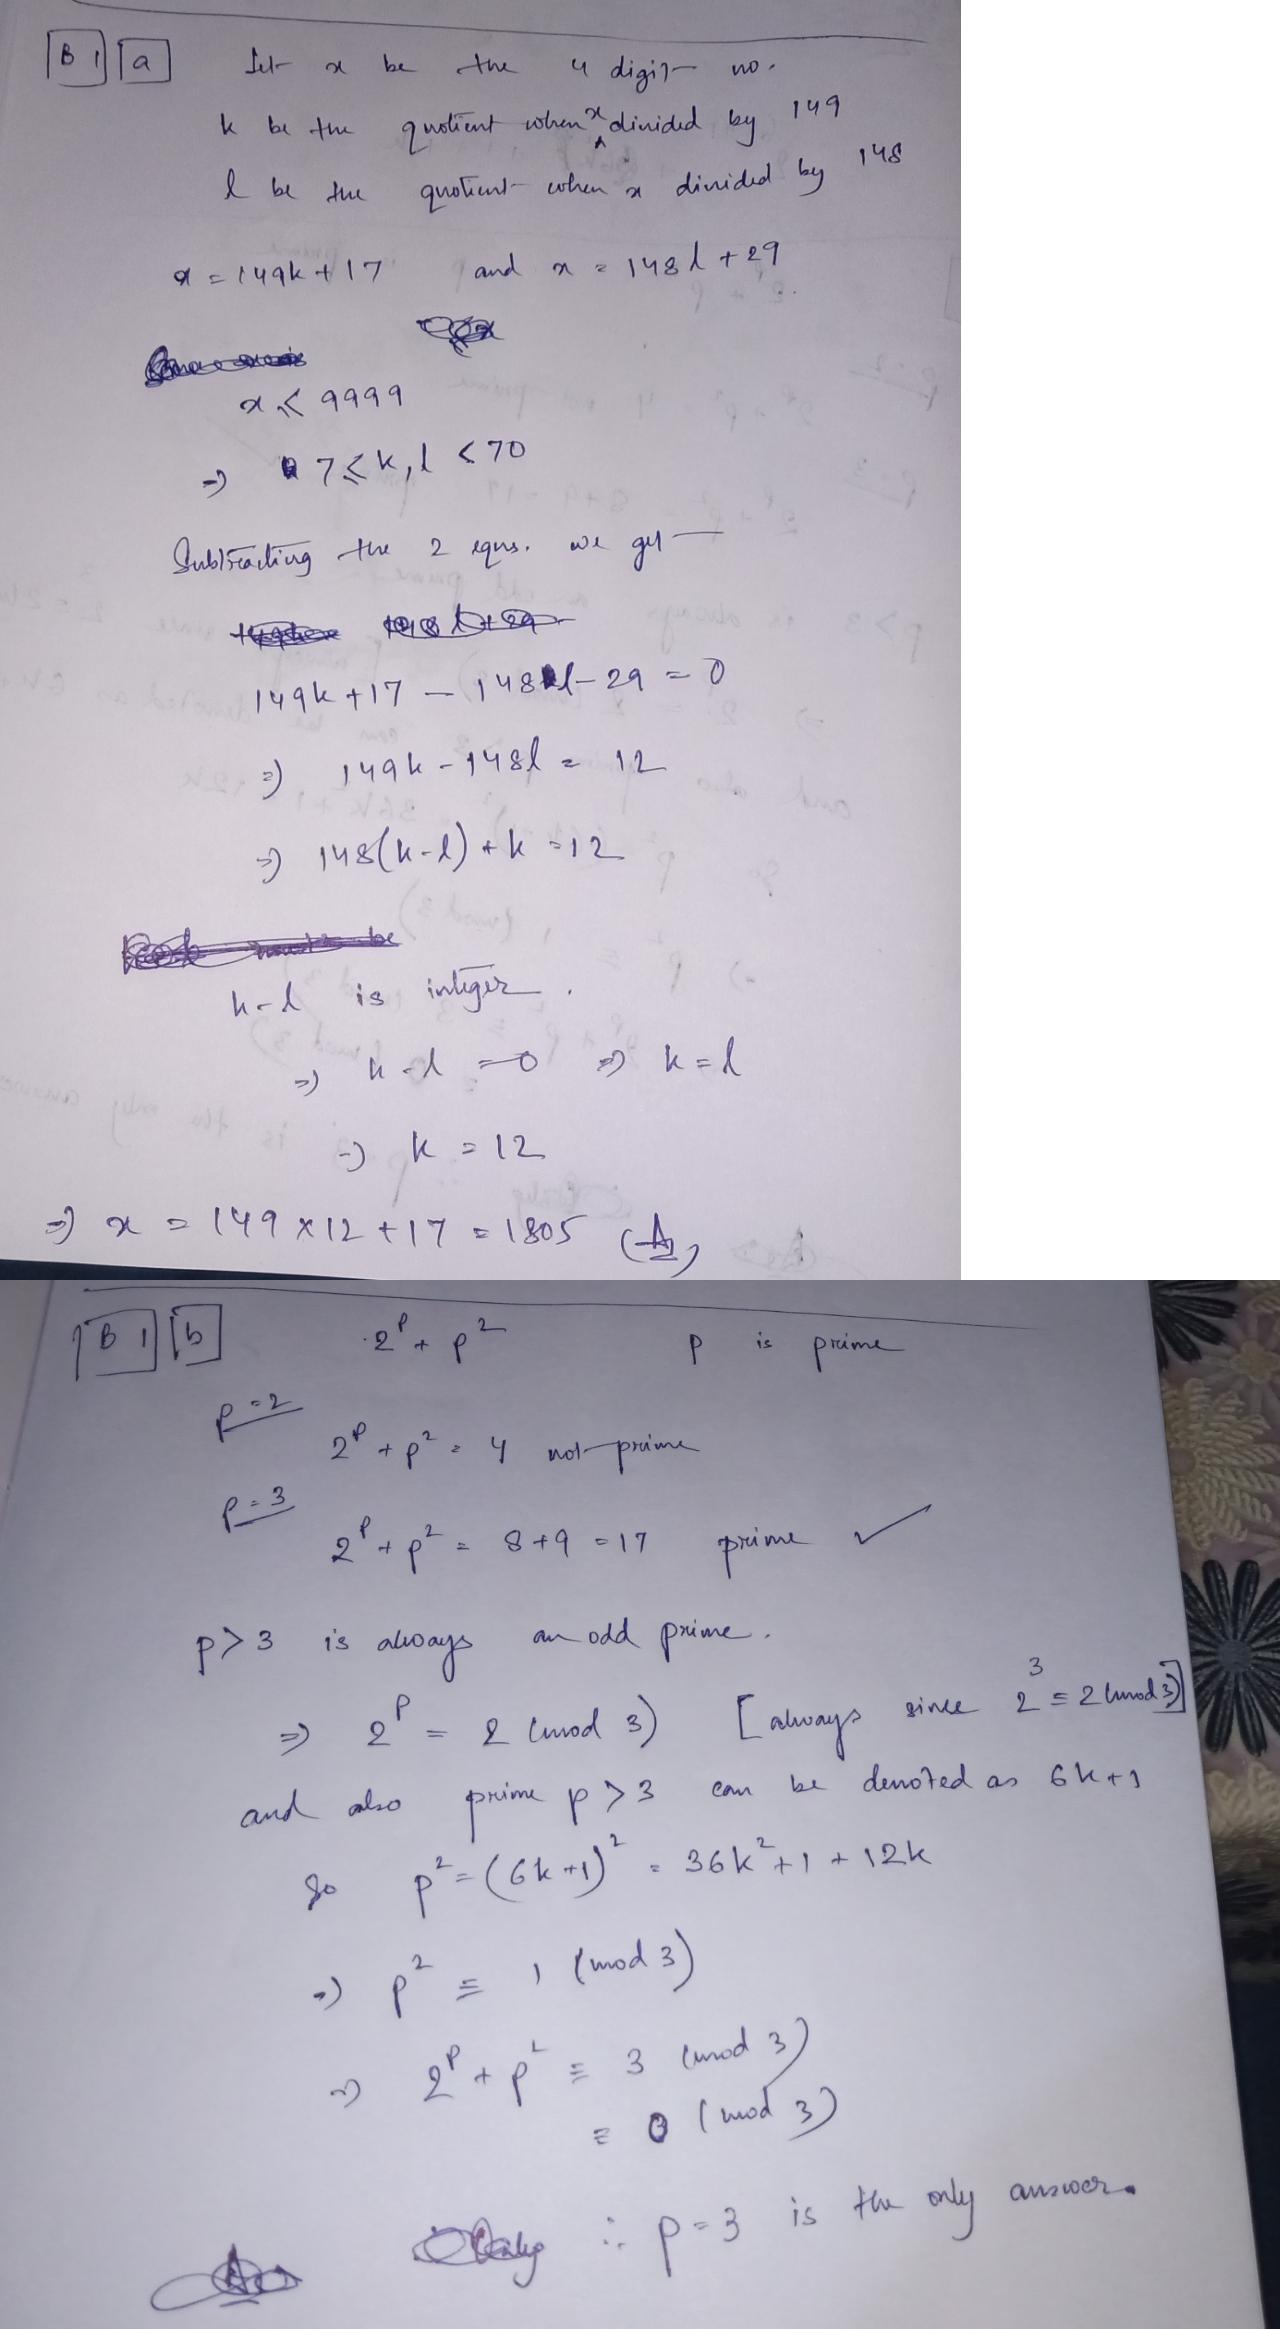 B 1 a Let x be the 4 digit no.
k be the quotient when x divided by 149
l be the quotient when x divided by 148
x = 149k + 17 and x = 148l + 29
x ≤ 9999
⇒ 7 ≤ k, l < 70
Subtracting the 2 eqns. we get
149k + 17 - 148l - 29 = 0
⇒ 149k - 148l = 12
⇒ 148(k-l) + k = 12
k-l is integer.
⇒ k-l = 0 ⇒ k = l
⇒ k = 12
⇒ x = 149 x 12 + 17 = 1805 (A)
B 1 b 2^p + p^2 p is prime
p = 2
2^p + p^2 = 4 not prime
p = 3
2^p + p^2 = 8 + 9 = 17 prime ✓
p > 3 is always an odd prime.
⇒ 2^p = 2 (mod 3) [always since 2^3 ≡ 2 (mod 3)]
and also prime p > 3 can be denoted as 6k+1
So p^2 = (6k+1)^2 = 36k^2 + 1 + 12k
⇒ p^2 ≡ 1 (mod 3)
⇒ 2^p + p^2 ≡ 3 (mod 3)
≡ 0 (mod 3)
∴ p = 3 is the only answer.